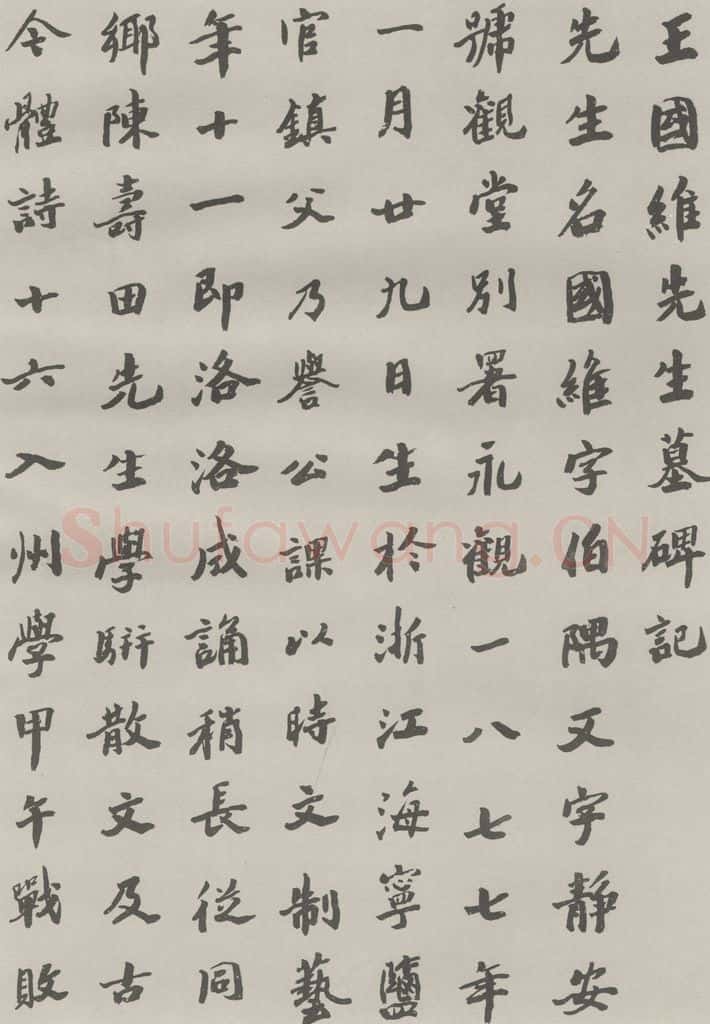 王國維先生墓碑記
先生名國維字伯隅又字靜安
號觀堂別署永觀一八七七年
一月廿九日生於浙江海寧鹽
官鎮父乃譽公課以時文制藝
年十一即洛洛成誦稍長從同
鄉陳壽田先生學駢散文及古
今體詩十六入州學甲午戰敗
Shufawang.CN